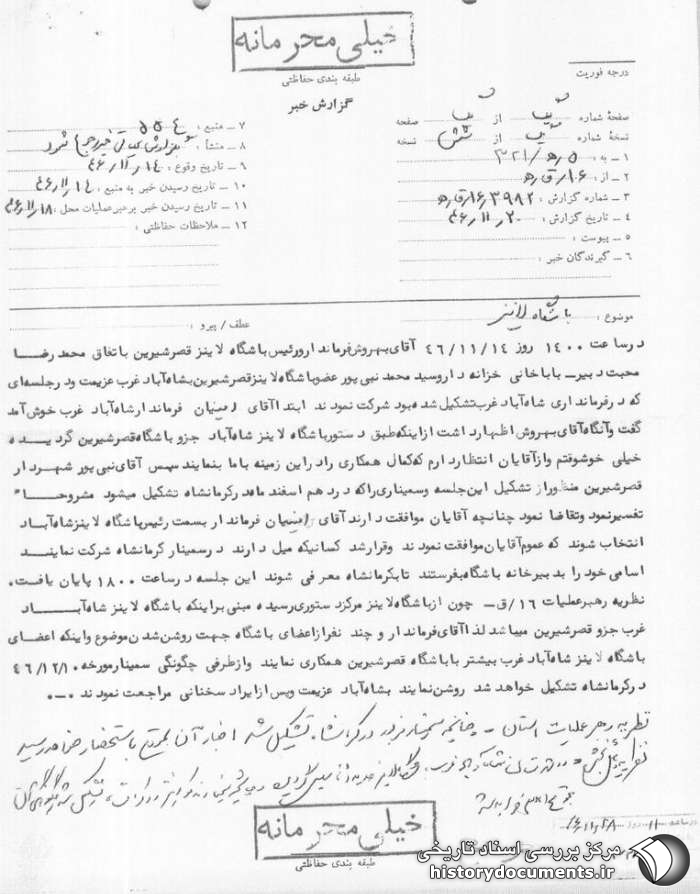 خیلی محرمانه
طبقه بندی حفاظتی
گزارش خبر
درجه فوریت
صفحهٔ شماره : یک از یک صفحه
نسخهٔ شماره : یک از شش نسخه
۱ ـ به : ۵ ه‍ / ۳۲۱
۲ ـ از : ۱۶ / ق
۳ ـ شماره گزارش : ۳۹۸۲ / ۱۶
۴ ـ تاریخ گزارش : ۲۰ / ۱۱ / ۴۶
۵ ـ پیوست :
۶ ـ گیرندگان خبر :
۷ ـ منبع : ۵۵۴
۸ ـ منشأ :
۹ ـ تاریخ وقوع : ۱۴ / ۱۱ / ۴۶
۱۰ ـ تاریخ رسیدن خبر به منبع : ۱۴ / ۱۱ / ۴۶
۱۱ ـ تاریخ رسیدن خبر بر هبر عملیات محل : ۱۸ / ۱۱ / ۴۶
۱۲ ـ ملاحظات حفاظتی :
موضوع : باشگاه لاینز
عطف / پیرو :
در ساعت ۱۴۰۰ روز ۴۶/۱۱/۱۴ آقای بهروش فرماندار و رئیس باشگاه لاینز قصرشیرین باتفاق محمد رضا
محبت دبیر ــ باباخانی خزانه دار و سید محمد نبی پور عضو باشگاه لاینز قصرشیرین بشاه آباد غرب عزیمت و در جلسه ای
که در فرمانداری شاه آباد غرب تشکیل شده بود شرکت نمودند ابتدا آقای امینیان فرماندار شاه آباد غرب خوش آمد
گفت و آنگاه آقای بهروش اظهار داشت از اینکه طبق دستور باشگاه لاینز شاه آباد جزو باشگاه قصرشیرین گردیده
خیلی خوشوقتم و از آقایان انتظار دارم که کمال همکاری را در این زمینه با ما بنمایند سپس آقای نبی پور شهردار
قصرشیرین منظور از تشکیل این جلسه و سمیناری را که در دهم اسفند ماه در کرمانشاه تشکیل میشود مشروحا"
تفسیر نمود و تقاضا نمود چنانچه آقایان موافقت دارند آقای امینیان فرماندار بسمت رئیس باشگاه لاینز شاه آباد
انتخاب شوند که عموم آقایان موافقت نمودند و قرار شد کسانیکه میل دارند در سمینار کرمانشاه شرکت نمایند
اسامی خود را به دبیرخانه باشگاه بفرستند تا بکرمانشاه معرفی شوند این جلسه در ساعت ۱۸۰۰ پایان یافت.
نظریه رهبر عملیات ۱۶/ق ــ چون از باشگاه لاینز مرکز دستوری رسیده مبنی بر اینکه باشگاه لاینز شاه آباد
غرب جزو قصرشیرین میباشد لذا آقای فرماندار و چند نفر از اعضای باشگاه جهت روشن شدن موضوع و اینکه اعضای
باشگاه لاینز شاه آباد غرب بیشتر با باشگاه قصرشیرین همکاری نمایند و از طرفی چگونگی سمینار مورخه ۴۶/۱۲/۱۰
در کرمانشاه تشکیل خواهد شد روشن نمایند بشاه آباد عزیمت و پس از ایراد سخنانی مراجعت نمودند ۰ــ۰
نظریه رهبر عملیات استان ــ چنانچه سمینار مزبور در کرمانشاه تشکیل شد اخبار آن بموقع باستحضار خواهد رسید
نظریه بخش
خیلی محرمانه
طبقه بندی حفاظتی
مرکز بررسی اسناد تاریخی
historydocuments.ir